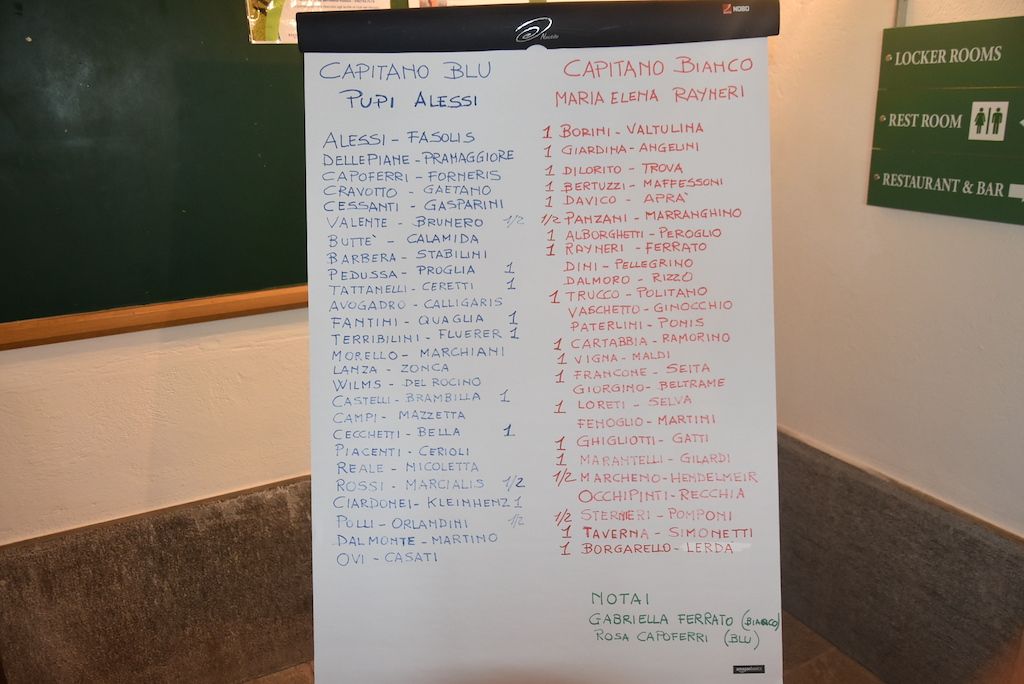 NOBO
Nautilo
CAPITANO BLU
PUPI ALESSI
ALESSI - FASOLIS
DELLEPIANE - PRAMAGGIORE
CAPOFERRI - FORNERIS
CRAVOTTO - GAETANO
CESSANTI - GASPARINI
VALENTE - BRUNERO 1/2
BUTTE' - CALAMIDA
BARBERA - STABILINI
PEDUSSA - PROGLIA 1
TATTANELLI - CERETTI 1
AVOGADRO - CALLIGARIS
FANTINI - QUAGLIA 1
TERRIBILINI - FLUERER 1
MORELLO - MARCHIANI
LANZA - ZONCA
WILMS - DEL ROCINO
CASTELLI - BRAMBILLA 1
CAMPI - MAZZETTA
CECCHETTI - BELLA 1
PIACENTI - CERIOLI
REALE - NICOLETTA
ROSSI - MARCIALIS 1/2
CIARDONEI - KLEINHENZ 1
POLLI - ORLANDINI 1/2
DALMONTE - MARTINO
OVI - CASATI
CAPITANO BIANCO
MARIA ELENA RAYNERI
1 BORINI - VALTULINA
1 GIARDINA - ANGELINI
1 DILORITO - TROVA
1 BERTUZZI - MAFFESSONI
1 DAVICO - APRA'
1/2 PANZANI - MARRANGHINO
1 ALBORGHETTI - PEROGLIO
1 RAYNERI - FERRATO
DINI - PELLEGRINO
DALMORO - RIZZO
1 TRUCCO - POLITANO
VASCHETTO - GINOCCHIO
PATERLINI - PONIS
1 CARTABBIA - RAMORINO
1 VIGNA - MALDI
1 FRANCONE - SEITA
GIORGINO - BELTRAME
1 LORETI - SELVA
FENOGLIO - MARTINI
1 GHIGLIOTTI - GATTI
1 MARANTELLI - GILARDI
1/2 MARCHENO - HENDELMEIR
OCCHIPINTI - RECCHIA
1/2 STERNERI - POMPONI
1 TAVERNA - SIMONETTI
1 BORGARELLO - LERDA
NOTAI
GABRIELLA FERRATO (BIANCO)
ROSA CAPOFERRI (BLU)
amazonbasics
LOCKER ROOMS
REST ROOM
RESTAURANT & BAR